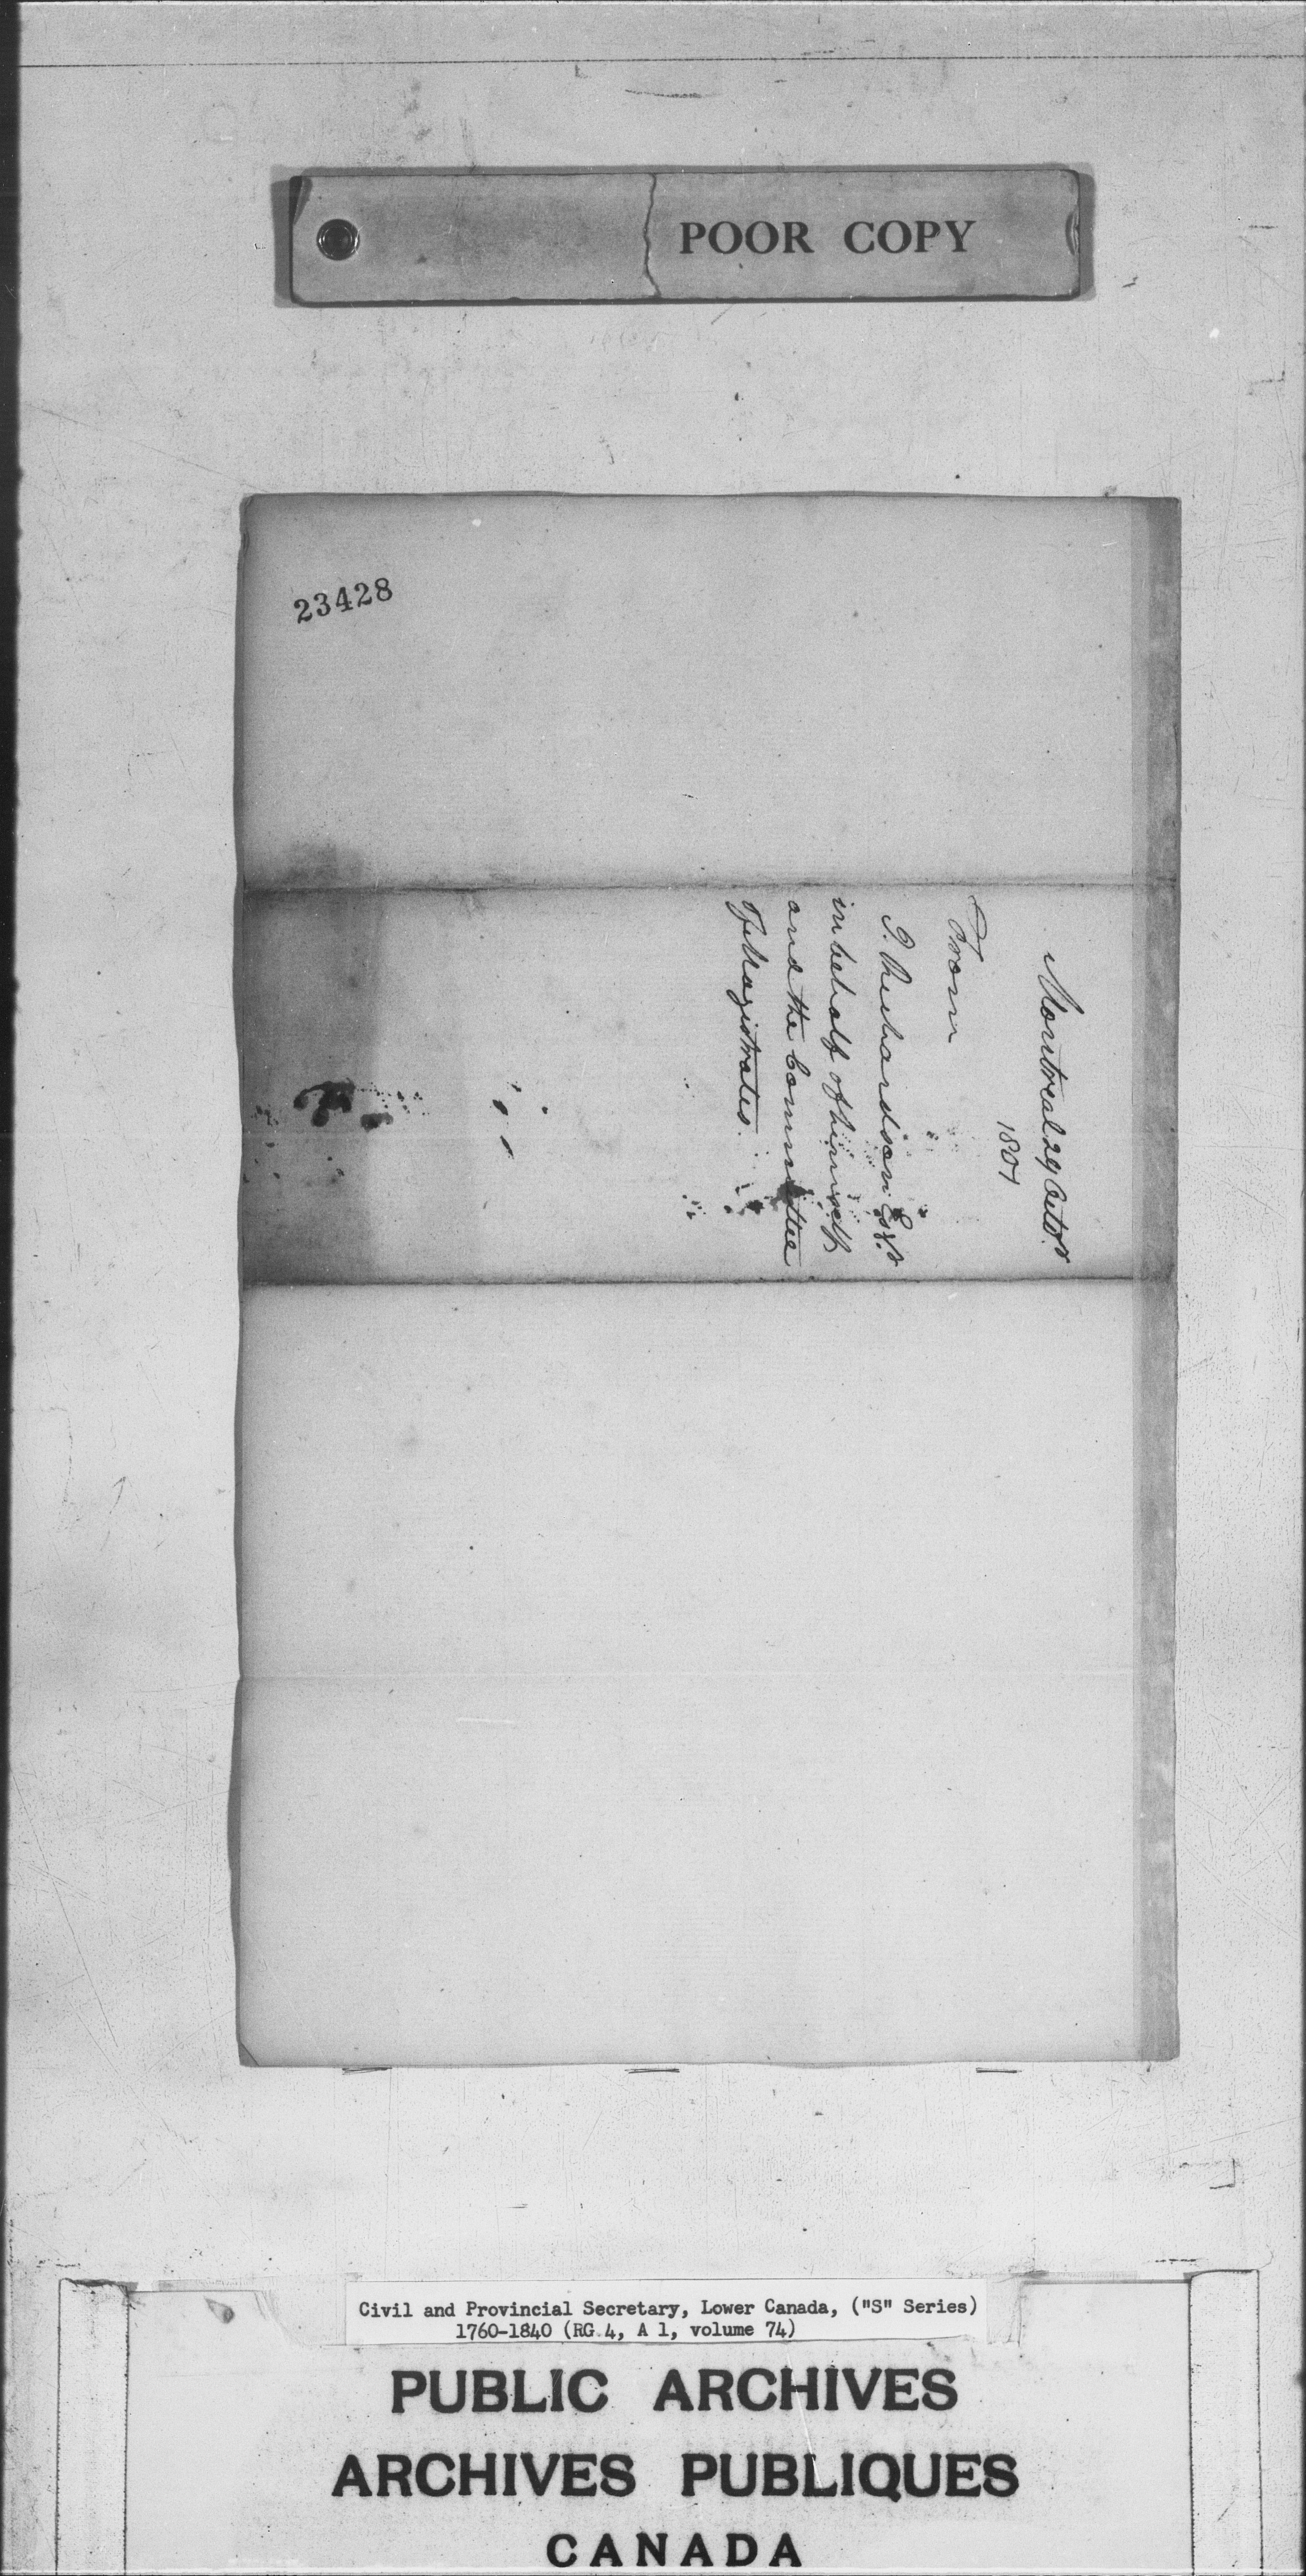 POOR COPY
23428
Montreal 29 Octor
1801
From
J. Richardson Esqr
in behalf of himself
and the Committee
of Magistrates.
Civil and Provincial Secretary, Lower Canada, ("S" Series)
1760-1840 (RG 4, A 1, volume 74)
PUBLIC ARCHIVES
ARCHIVES PUBLIQUES
CANADA